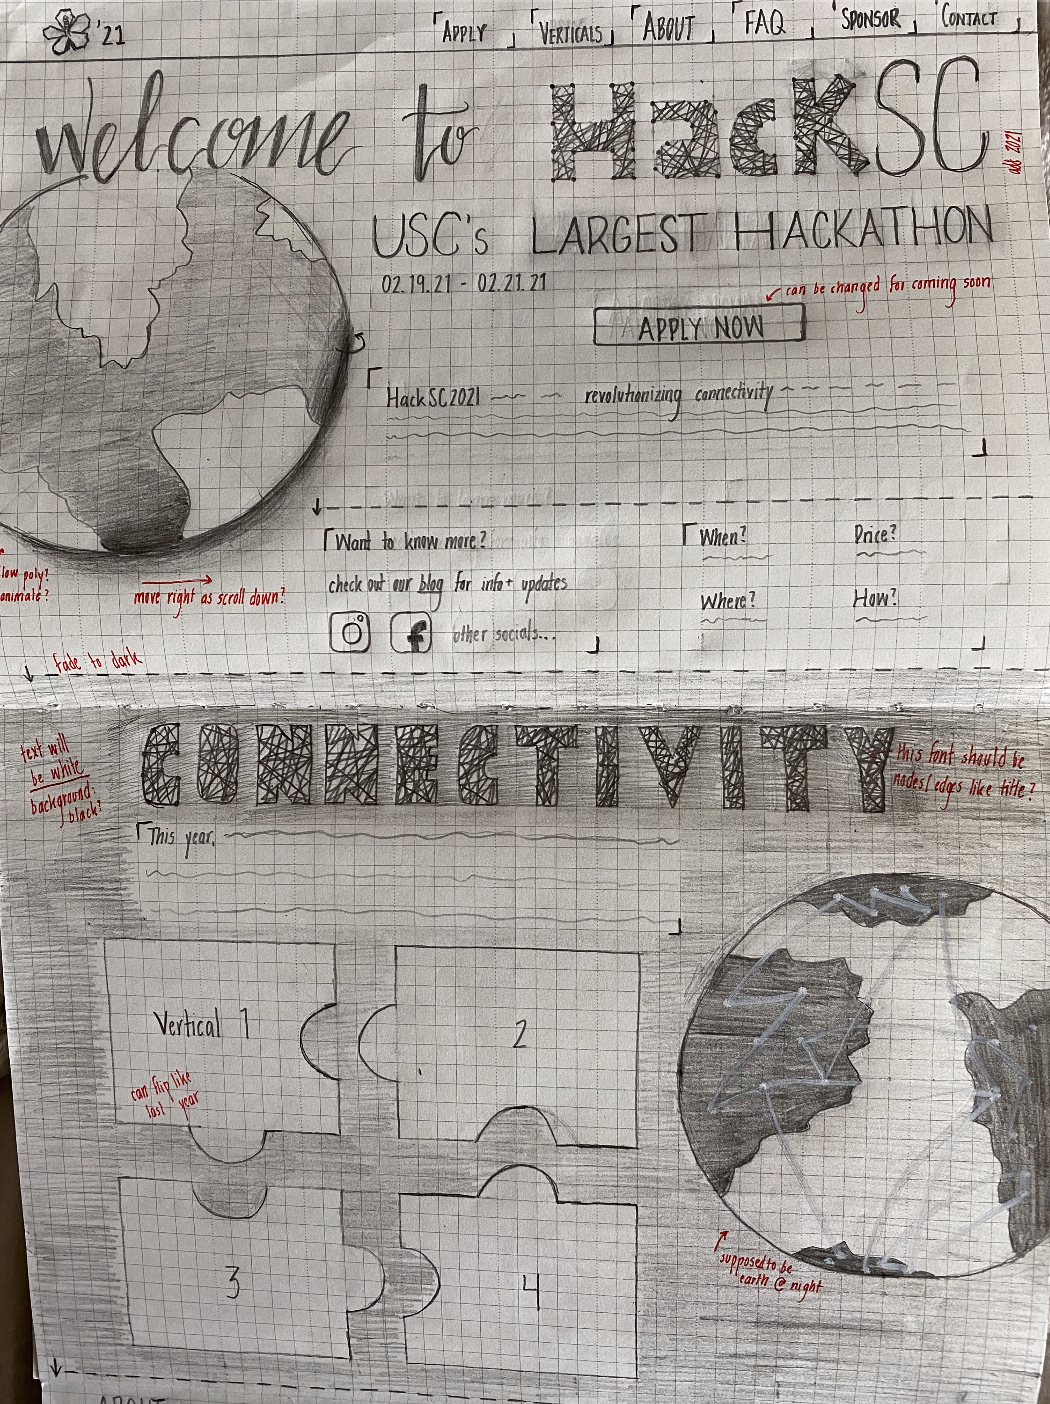 '21 APPLY VERTICALS ABOUT FAQ SPONSOR CONTACT
welcome to HacKSC
add 2021
USC's LARGEST HACKATHON
02.19.21 - 02.21.21
can be changed for coming soon
APPLY NOW
HackSC2021 revolutionizing connectivity
Want to know more?
check out our blog for info + updates
other socials...
When? Price?
Where? How?
low poly?
animate?
move right as scroll down?
fade to dark
CONNECTIVITY
text will
be white
background:
black?
this font should be
nodes/edges like title?
This year,
Vertical 1
can flip like
last year
2
3
4
supposed to be
earth @ night
ABOUT